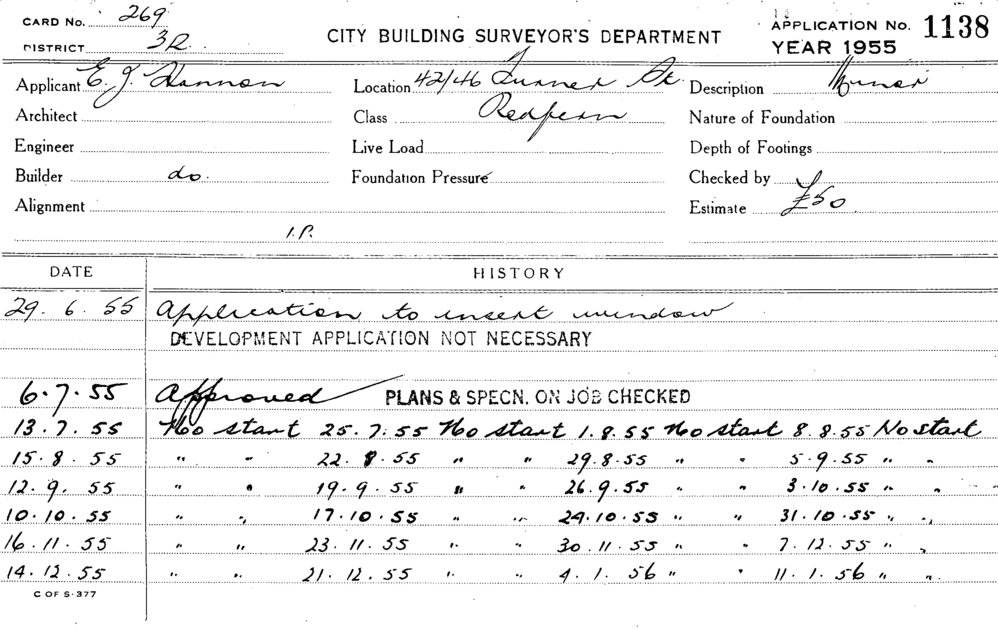 CARD No. 269
CITY BUILDING SURVEYOR'S DEPARTMENT
APPLICATION No. 1138
DISTRICT 3R.
YEAR 1955
Applicant E. J. Hannon Location 42/46 Turner St. Description Minor
Architect Class Redfern Nature of Foundation
Engineer Live Load Depth of Footings
Builder do. Foundation Pressure Checked by
Alignment Estimate £50
I.P.
DATE HISTORY
29. 6. 55 Application to insert window
DEVELOPMENT APPLICATION NOT NECESSARY
6.7.55 Approved PLANS & SPECN. ON JOB CHECKED
13.7.55 No start 25.7.55 No start 1.8.55 No start 8.8.55 No start
15.8.55 " " 22.8.55 " " 29.8.55 " " 5.9.55 " "
12.9.55 " " 19.9.55 " " 26.9.55 " " 3.10.55 " "
10.10.55 " " 17.10.55 " " 24.10.55 " " 31.10.55 " "
16.11.55 " " 23.11.55 " " 30.11.55 " " 7.12.55 " "
14.12.55 " " 21.12.55 " " 4.1.56 " " 11.1.56 " "
C OF S-377